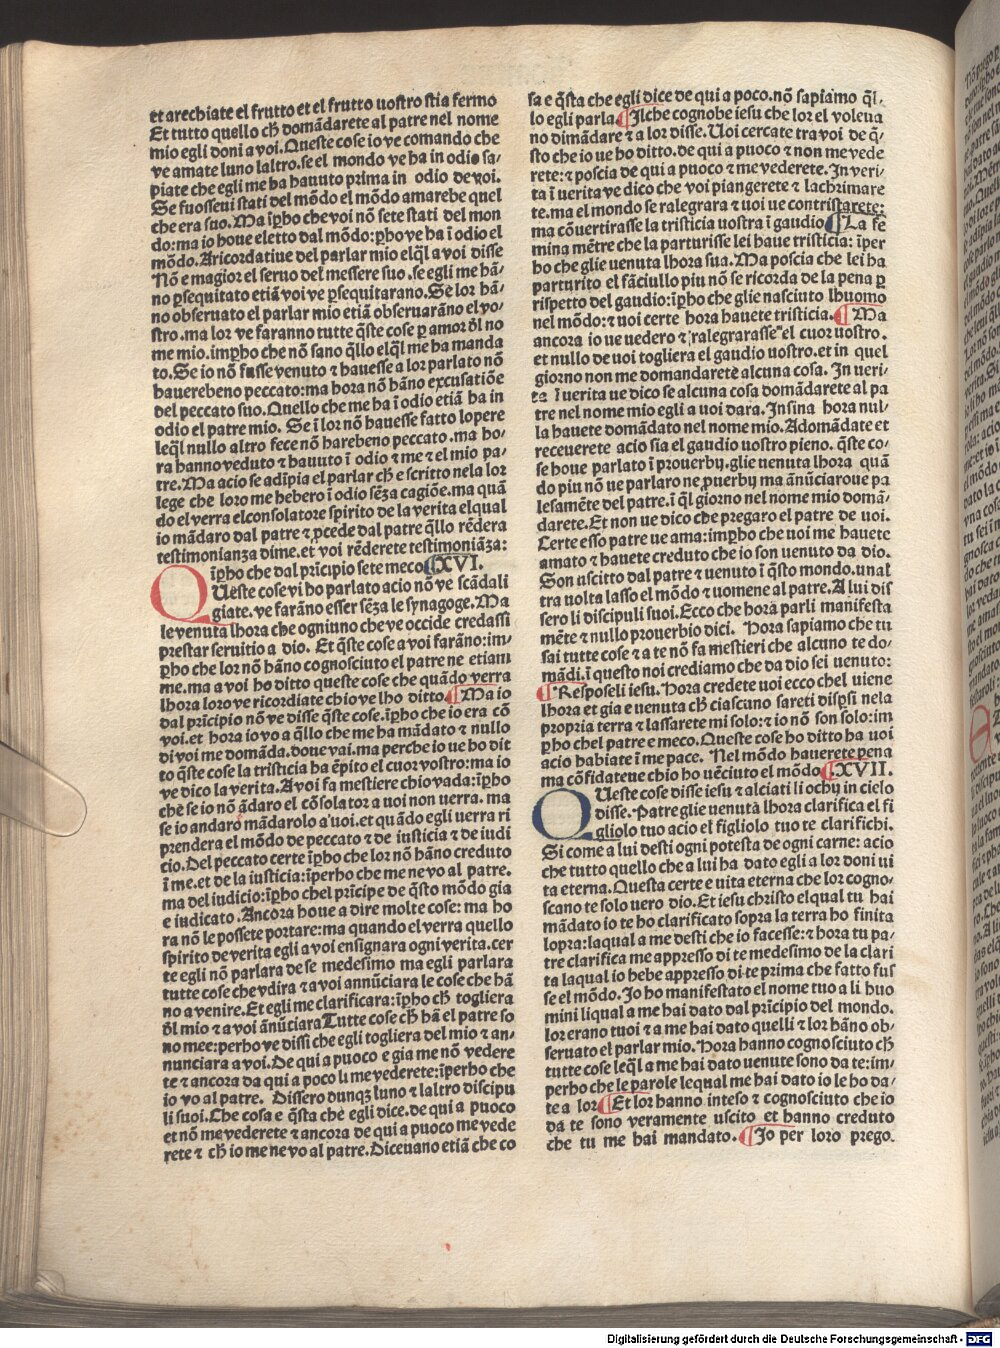 et arechiate el frutto et el frutto uostro stia fermo
Et tutto quello ch̄ domādarete al patre nel nome
mio egli doni a voi. Queste cose io ve comando che
ve amate luno laltro. se el mondo ve ha in odio sa-
piate che egli me ba hauuto prima in odio de voi.
Se fuosseui stati del mōdo el mōdo amarebe quel
che era suo. Ma īꝑho che voi nō sete stati del mon
do: ma io houe eletto dal mōdo: ꝑho ve ha ī odio el
mōdo. Aricordatiue del parlar mio elq̄l a voi disse
Nō e magior el seruo del messere suo. se egli me hā-
no ꝑsequitato etiā voi ve ꝑsequitarano. Se lor hā-
no obseruato el parlar mio etiā obseruarāno el vo-
stro. ma lor ve faranno tutte q̄ste cose ꝑ amor ďl no
me mio. imꝑho che nō sano q̄llo elq̄l me ha manda
to. Se io nō fusse venuto ⁊ hauesse a lor parlato nō
hauerebeno peccato: ma hora nō hāno excusatiōe
del peccato suo. Quello che me ha ī odio etiā ha in
odio el patre mio. Se ī lor nō hauesse fatto lopere
leq̄l nullo altro fece nō harebeno peccato. ma ho-
ra hanno veduto ⁊ hauuto ī odio ⁊ me ⁊ el mio pa-
tre. Ma acio se adīpia el parlar ch̄ e scritto nela lor
lege che loro me hebero ī odio sēza cagiōe. ma quā
do el verra el consolatore spirito de la verita elqual
io mādaro dal patre ⁊ ꝓcede dal patre q̄llo rēdera
testimonianza dime. et voi rēderete testimoniāza:
īꝑho che dal prīcipio sete meco. ¶ XVI.
QUeste cose vi ho parlato acio nō ve scādali
giate. ve farāno esser sēza le synagoge. Ma
le venuta lhora che ogniuno che ve occide credassi
prestar seruitio a dio. Et q̄ste cose a voi farāno: im-
ꝑho che lor nō hāno cognosciuto el patre ne etiam
me. ma a voi ho ditto queste cose che quādo verra
lhora loro ve ricordiate chio ve lho ditto. ¶ Ma io
dal prīcipio nō ve disse q̄ste cose. īꝑho che io era cō
voi. et hora io vo a q̄llo che me ha mādato ⁊ nullo
di voi me domāda. doue vai. ma perche io ue ho dit
to q̄ste cose la tristicia ha ēpito el cuor vostro: ma io
ve dico la verita. A voi fa mestiere chio vada: īꝑho
che se io nō ādaro el cōsolator a uoi non uerra. ma
se io andaro mādarolo a uoi. et quādo egli uerra ri
prendera el mōdo de peccato ⁊ de iusticia ⁊ de iudi
cio. Del peccato certe īꝑho che lor nō hāno creduto
ī me. et de la iusticia: īperho che me ne vo al patre.
ma del iudicio: īꝑho chel prīcipe de q̄sto mōdo gia
e iudicato. Ancora houe a dire molte cose: ma ho
ra nō le possete portare: ma quando el verra quello
spirito de verita egli a voi ensignara ogni verita. cer
te egli nō parlara de se medesimo ma egli parlara
tutte cose che vdira ⁊ a voi annūciara le cose che hā
no a venire. Et egli me clarificara: īꝑho ch̄ togliera
ďl mio ⁊ a voi ānūciara Tutte cose ch̄ hā el patre so
no mee: perho ve dissi che egli togliera del mio ⁊ an-
nunciara a voi. De qui a puoco e gia me nō vedere
te ⁊ ancora da qui a poco u me vederete: īperho che
io vo al patre. Dissero dunqꝫ luno ⁊ laltro discipu
li suoi. Che cosa e q̄sta che egli dice. de qui a puoco
et nō me vederete ⁊ ancora de qui a puoco me vede
rete ⁊ ch̄ io me ne vo al patre. Diceuano etiā che co
sa e q̄sta che egli dice de qui a poco. nō sapiamo q̄l-
lo egli parla. ¶ Ilche cognobe iesu che lor el voleua
no dimādare ⁊ a lor disse. Uoi cercate tra voi de q̄-
sto che io ue ho ditto. de qui a puoco ⁊ non me vede
rete: ⁊ poscia de qui a puoco ⁊ me vederete. In veri-
ta ī uerita ve dico che voi piangerete ⁊ lachrimare
te. ma el mondo se ralegrara ⁊ uoi ue contristarete:
ma cōuertirasse la tristicia uostra ī gaudio. ¶ La fe
mina mētre che la parturisse lei haue tristicia: īper
ho che glie uenuta lhora sua. Ma poscia che lei ha
parturito el fāciullo piu nō se ricorda de la pena ꝑ
rispetto del gaudio: īꝑho che glie nasciuto lhuomo
nel mōdo: ⁊ uoi certe hora hauete tristicia. ¶ Ma
ancora io ue uedero ⁊ ralegrarasse el cuor uostro.
et nullo de uoi togliera el gaudio uostro. et in quel
giorno non me domandarete alcuna cosa. In ueri-
ta ī uerita ue dico se alcuna cosa domādarete al pa
tre nel nome mio egli a uoi dara. Insina hora nul-
la hauete domādato nel nome mio. Adomādate et
receuerete acio sia el gaudio uostro pieno. q̄ste co-
se houe parlato ī prouerby. glie uenuta lhora quā
do piu nō ue parlaro ne ꝓuerby ma ānūciaroue pa
lesamēte del patre. ī q̄l giorno nel nome mio domā-
darete. Et non ue dico che pregaro el patre de uoi.
Certe esso patre ue ama: imꝑho che uoi me hauete
amato ⁊ hauete creduto che io son uenuto da dio.
Son uscitto dal patre ⁊ uenuto ī q̄sto mondo. unal
tra uolta lasso el mōdo ⁊ uomene al patre. A lui dis
sero li discipuli suoi. Ecco che hora parli manifesta
mēte ⁊ nullo prouerbio dici. Hora sapiamo che tu
sai tutte cose ⁊ a te nō fa mestieri che alcuno te do-
mādi. ī questo noi crediamo che da dio sei uenuto:
¶ Resposeli iesu. Hora credete uoi ecco chel uiene
lhora et gia e uenuta ch̄ ciascuno sareti dispsi nela
propria terra ⁊ lassarete mi solo: ⁊ io nō son solo: im
ꝑho chel patre e meco. Queste cose ho ditto ha uoi
acio habiate ī me pace. Nel mōdo hauerete pena
ma cōfidateue chio ho uēciuto el mōdo. ¶ XVII.
QUeste cose disse iesu ⁊ alciati li ochy in cielo
disse. Patre glie uenuta lhora clarifica el fi
gliolo tuo acio el figliolo tuo te clarifichi.
Si come a lui desti ogni potesta de ogni carne: acio
che tutto quello che a lui ha dato egli a lor doni ui
ta eterna. Questa certe e uita eterna che lor cogno-
scano te solo uero dio. Et iesu christo elqual tu hai
mādato io te ho clarificato sopra la terra ho finita
lopra: laqual a me desti che io facesse: ⁊ hora tu pa-
tre clarifica me appresso di te medesimo de la clari
ta laqual io hebe appresso di te prima che fatto fus
se el mōdo. Io ho manifestato el nome tuo a li huo
mini liqual a me hai dato dal prīcipio del mondo.
lor erano tuoi ⁊ a me hai dato quelli ⁊ lor hāno ob-
seruato el parlar mio. Hora hanno cognosciuto ch̄
tutte cose leq̄l a me hai dato uenute sono da te: im-
perho che le parole lequal me hai dato io le ho da-
te a lor. ¶ Et lor hanno inteso ⁊ cognosciuto che io
da te sono veramente uscito et hanno creduto
che tu me hai mandato. ¶ Io per loro prego.
Digitalisierung gefördert durch die Deutsche Forschungsgemeinschaft - DFG